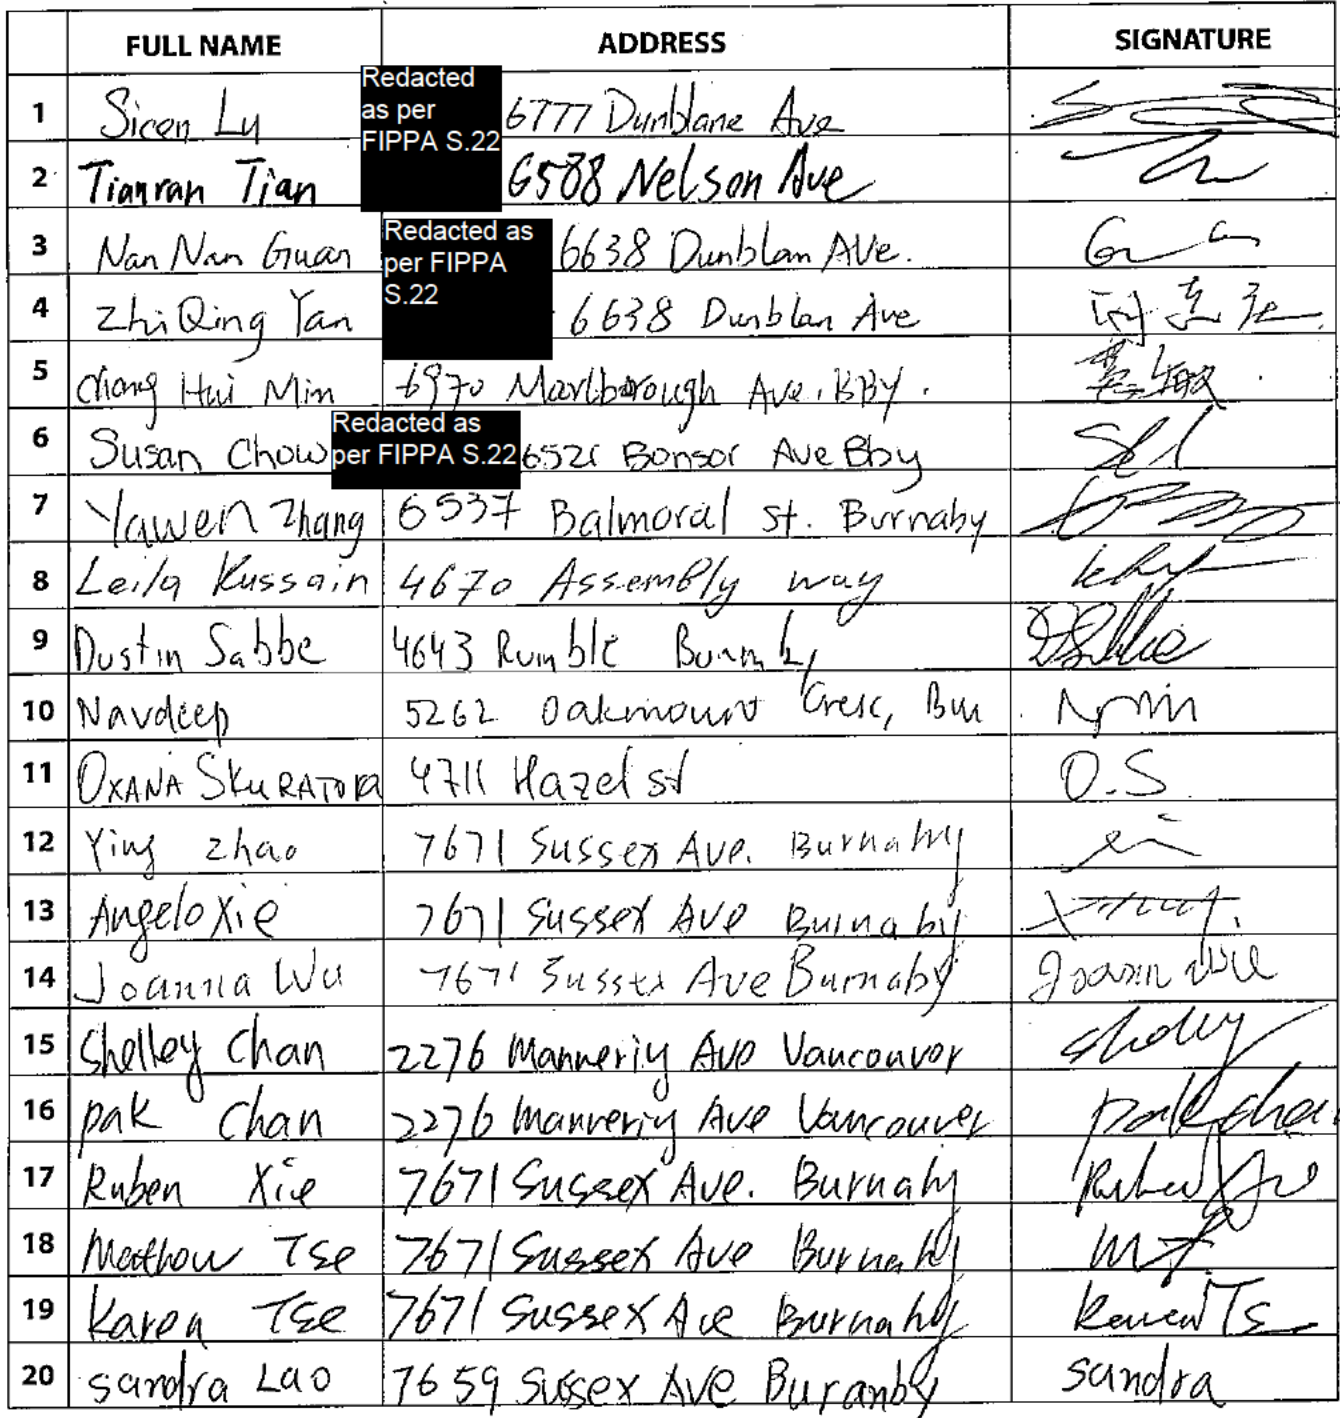 FULL NAME ADDRESS SIGNATURE
1 Sicen Lu Redacted as per FIPPA S.22 6777 Dunblane Ave
2 Tianran Tian 6588 Nelson Ave
3 Nan Nan Guan Redacted as per FIPPA S.22 6638 Dunblan AVe.
4 Zhi Qing Yan 6638 Dunblan Ave
5 Chong Hui Min 6970 Marlborough Ave. BBY.
6 Susan Chow Redacted as per FIPPA S.22 6521 Bonsor Ave Bby
7 Yawen Zhang 6537 Balmoral St. Burnaby
8 Leila Kussain 4670 Assembly way
9 Dustin Sabbe 4643 Rumble DSabbe
10 Navdeep 5262 Oakmount Cresc, Bur
11 OXANA SKURATOVA 4711 Hazel st O.S
12 Ying Zhao 7671 Sussex Ave. Burnaby
13 Angelo Xie 7671 Sussex Ave Burnaby
14 Joanna Wu 7671 Sussex Ave Burnaby
15 Shelley Chan 2276 Ave Vancouver Shelley
16 pak Chan 2276 Ave Vancouver pak chan
17 Ruben Xie 7671 Sussex Ave. Burnaby Ruben
18 Matthow Tse 7671 Sussex Ave Burnaby
19 Karen Tse 7671 Sussex Ave Burnaby Karen Ts
20 sandra Lao 7659 Sussex Ave Buranby sandra